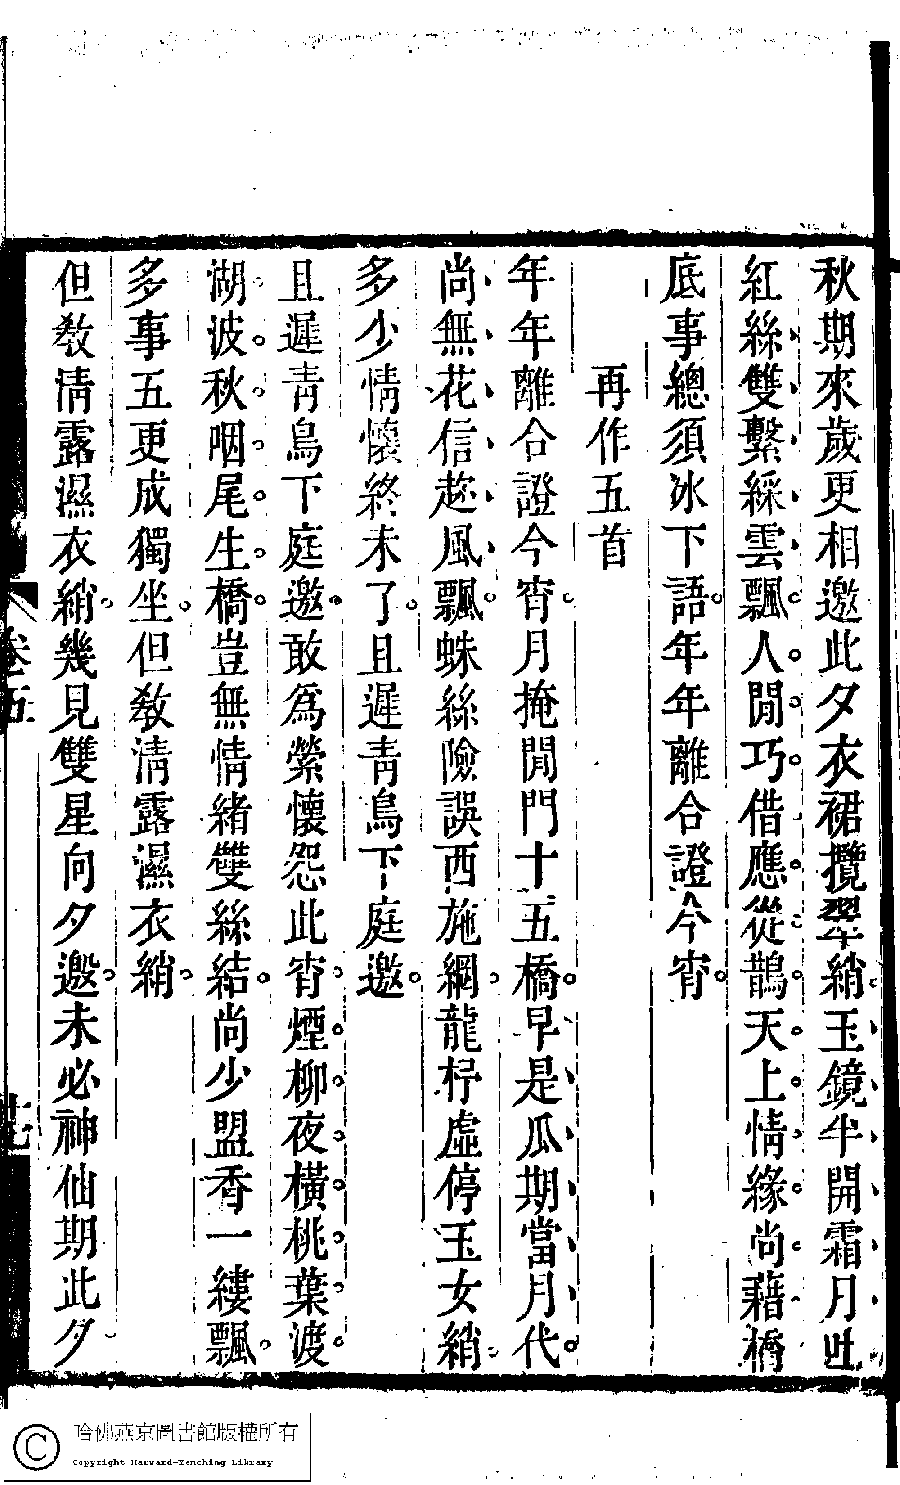 秋期來歲更相邀此夕衣裙攬翠綃玉鏡半開霜月吐
紅絲雙繫綵雲飄人閒巧借應從鵲天上情緣尚藉橋
底事總須冰下語年年離合證今宵
再作五首
年年離合證今宵月掩閒門十五橋早是瓜期當月代
尚無花信趁風飄蛛絲險誤西施網龍杼虛停玉女綃
多少情懷終未了且遲青鳥下庭邀
且遲青鳥下庭邀敢爲縈懷怨此宵煙柳夜橫桃葉渡
湖波秋咽尾生橋豈無情緒雙絲結尚少盟香一縷飄
多事五更成獨坐但教清露濕衣綃
但教清露濕衣綃幾見雙星向夕邀未必神仙期此夕
卷五
哈佛燕京圖書館版權所有
Copyright Harvard-Yenching Library